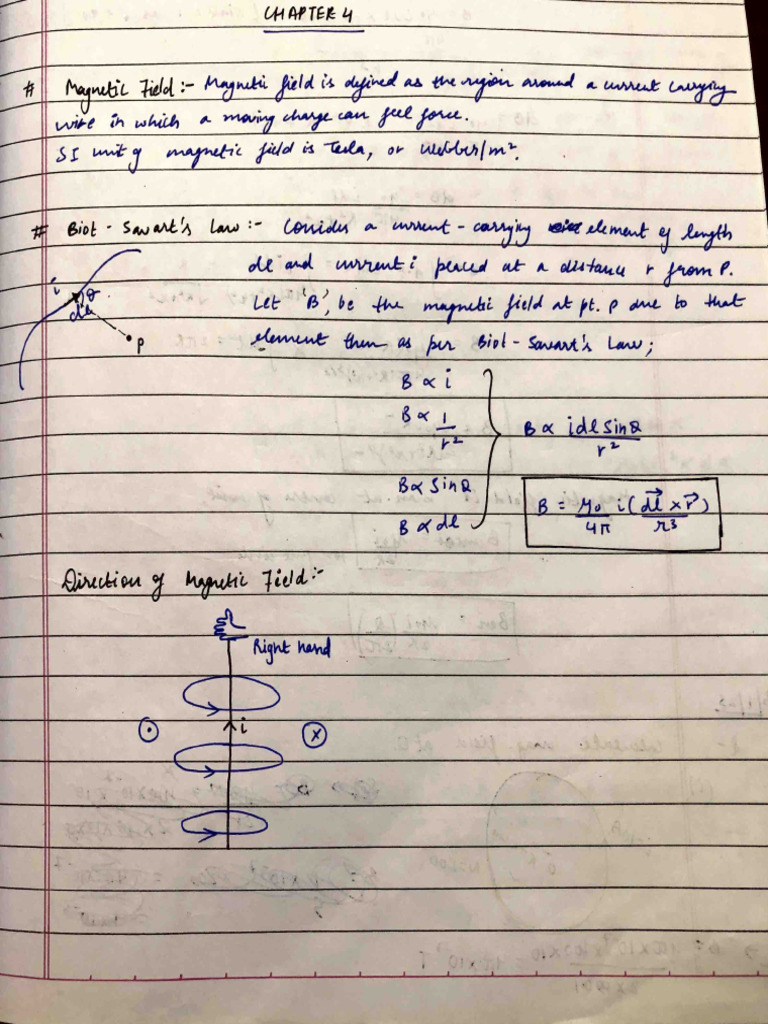 CHAPTER 4
# Magnetic Field:- Magnetic field is defined as the region around a current carrying
wire in which a moving charge can feel force.
SI unit of magnetic field is Tesla, or Webber/m².
# Biot - Savart's Law:- Consider a current - carrying element of length
dl and current i placed at a distance r from P.
Let 'B', be the magnetic field at pt. P due to that
element then as per Biot - Savart's Law;
i θ
dl
P
B ∝ i
B ∝ 1/r²
B ∝ idl sinθ/r²
B ∝ Sinθ
B ∝ dl
B = μ₀/4π i(dl⃗ × r⃗)/r³
Direction of Magnetic Field:-
Right hand
i
x